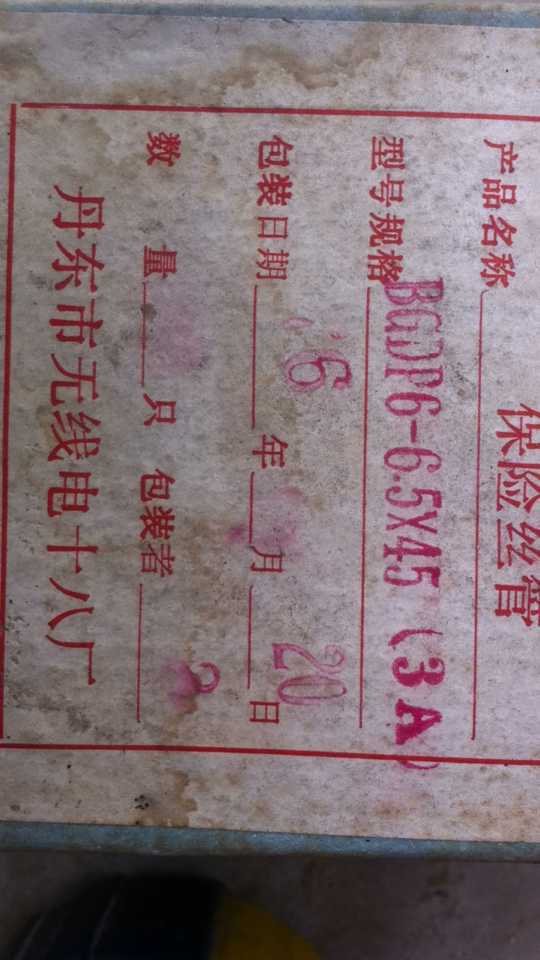 产品名称 保险丝管
型号规格 BGDP6-6.5X45 (3A)
包装日期 6 年 月 20 日
数 量 只 包装者
丹东市无线电十八厂